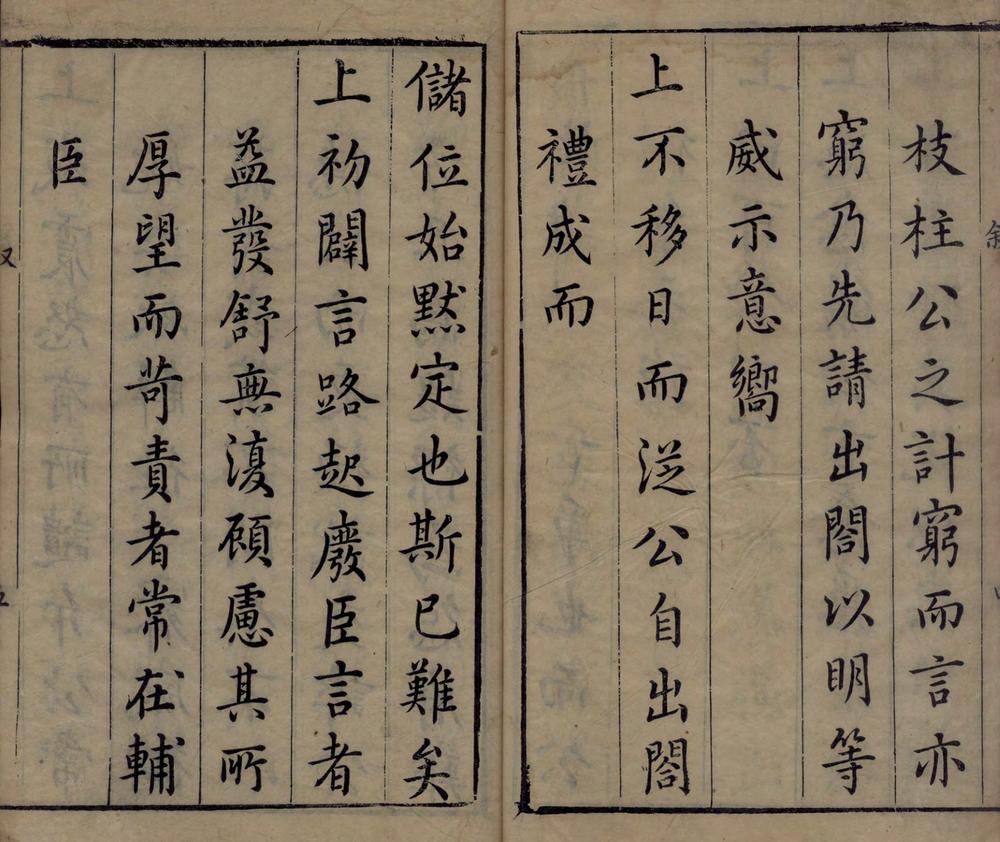 枝柱公之計窮而言亦
窮乃先請出閤以明等
威示意嚮
上不移日而従公自出閤
禮成而
儲位始默定也斯已難矣
上初闢言路起廢臣言者
益發舒無復顧慮其所
厚望而苛責者常在輔
臣